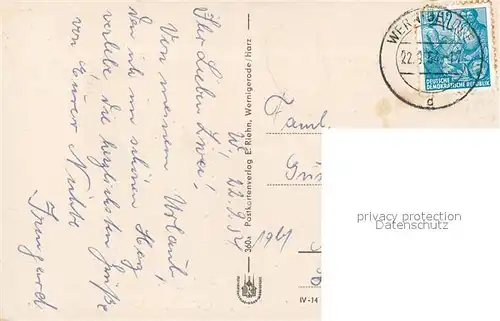 Ihr Lieben Zwei!
Von meinem Urlaub,
den ich im schönen Harz
verlebe, die herzlichsten Grüße
von Eurer Nichte
Irmgard.
360a Postkartenverlag E. Riehn, Wernigerode/Harz
IV-14
W., 22.9.54
Faml.
1941
WERNIGERODE
22.
d
DEUTSCHE
DEMOKRATISCHE REPUBLIK
privacy protection
Datenschutz